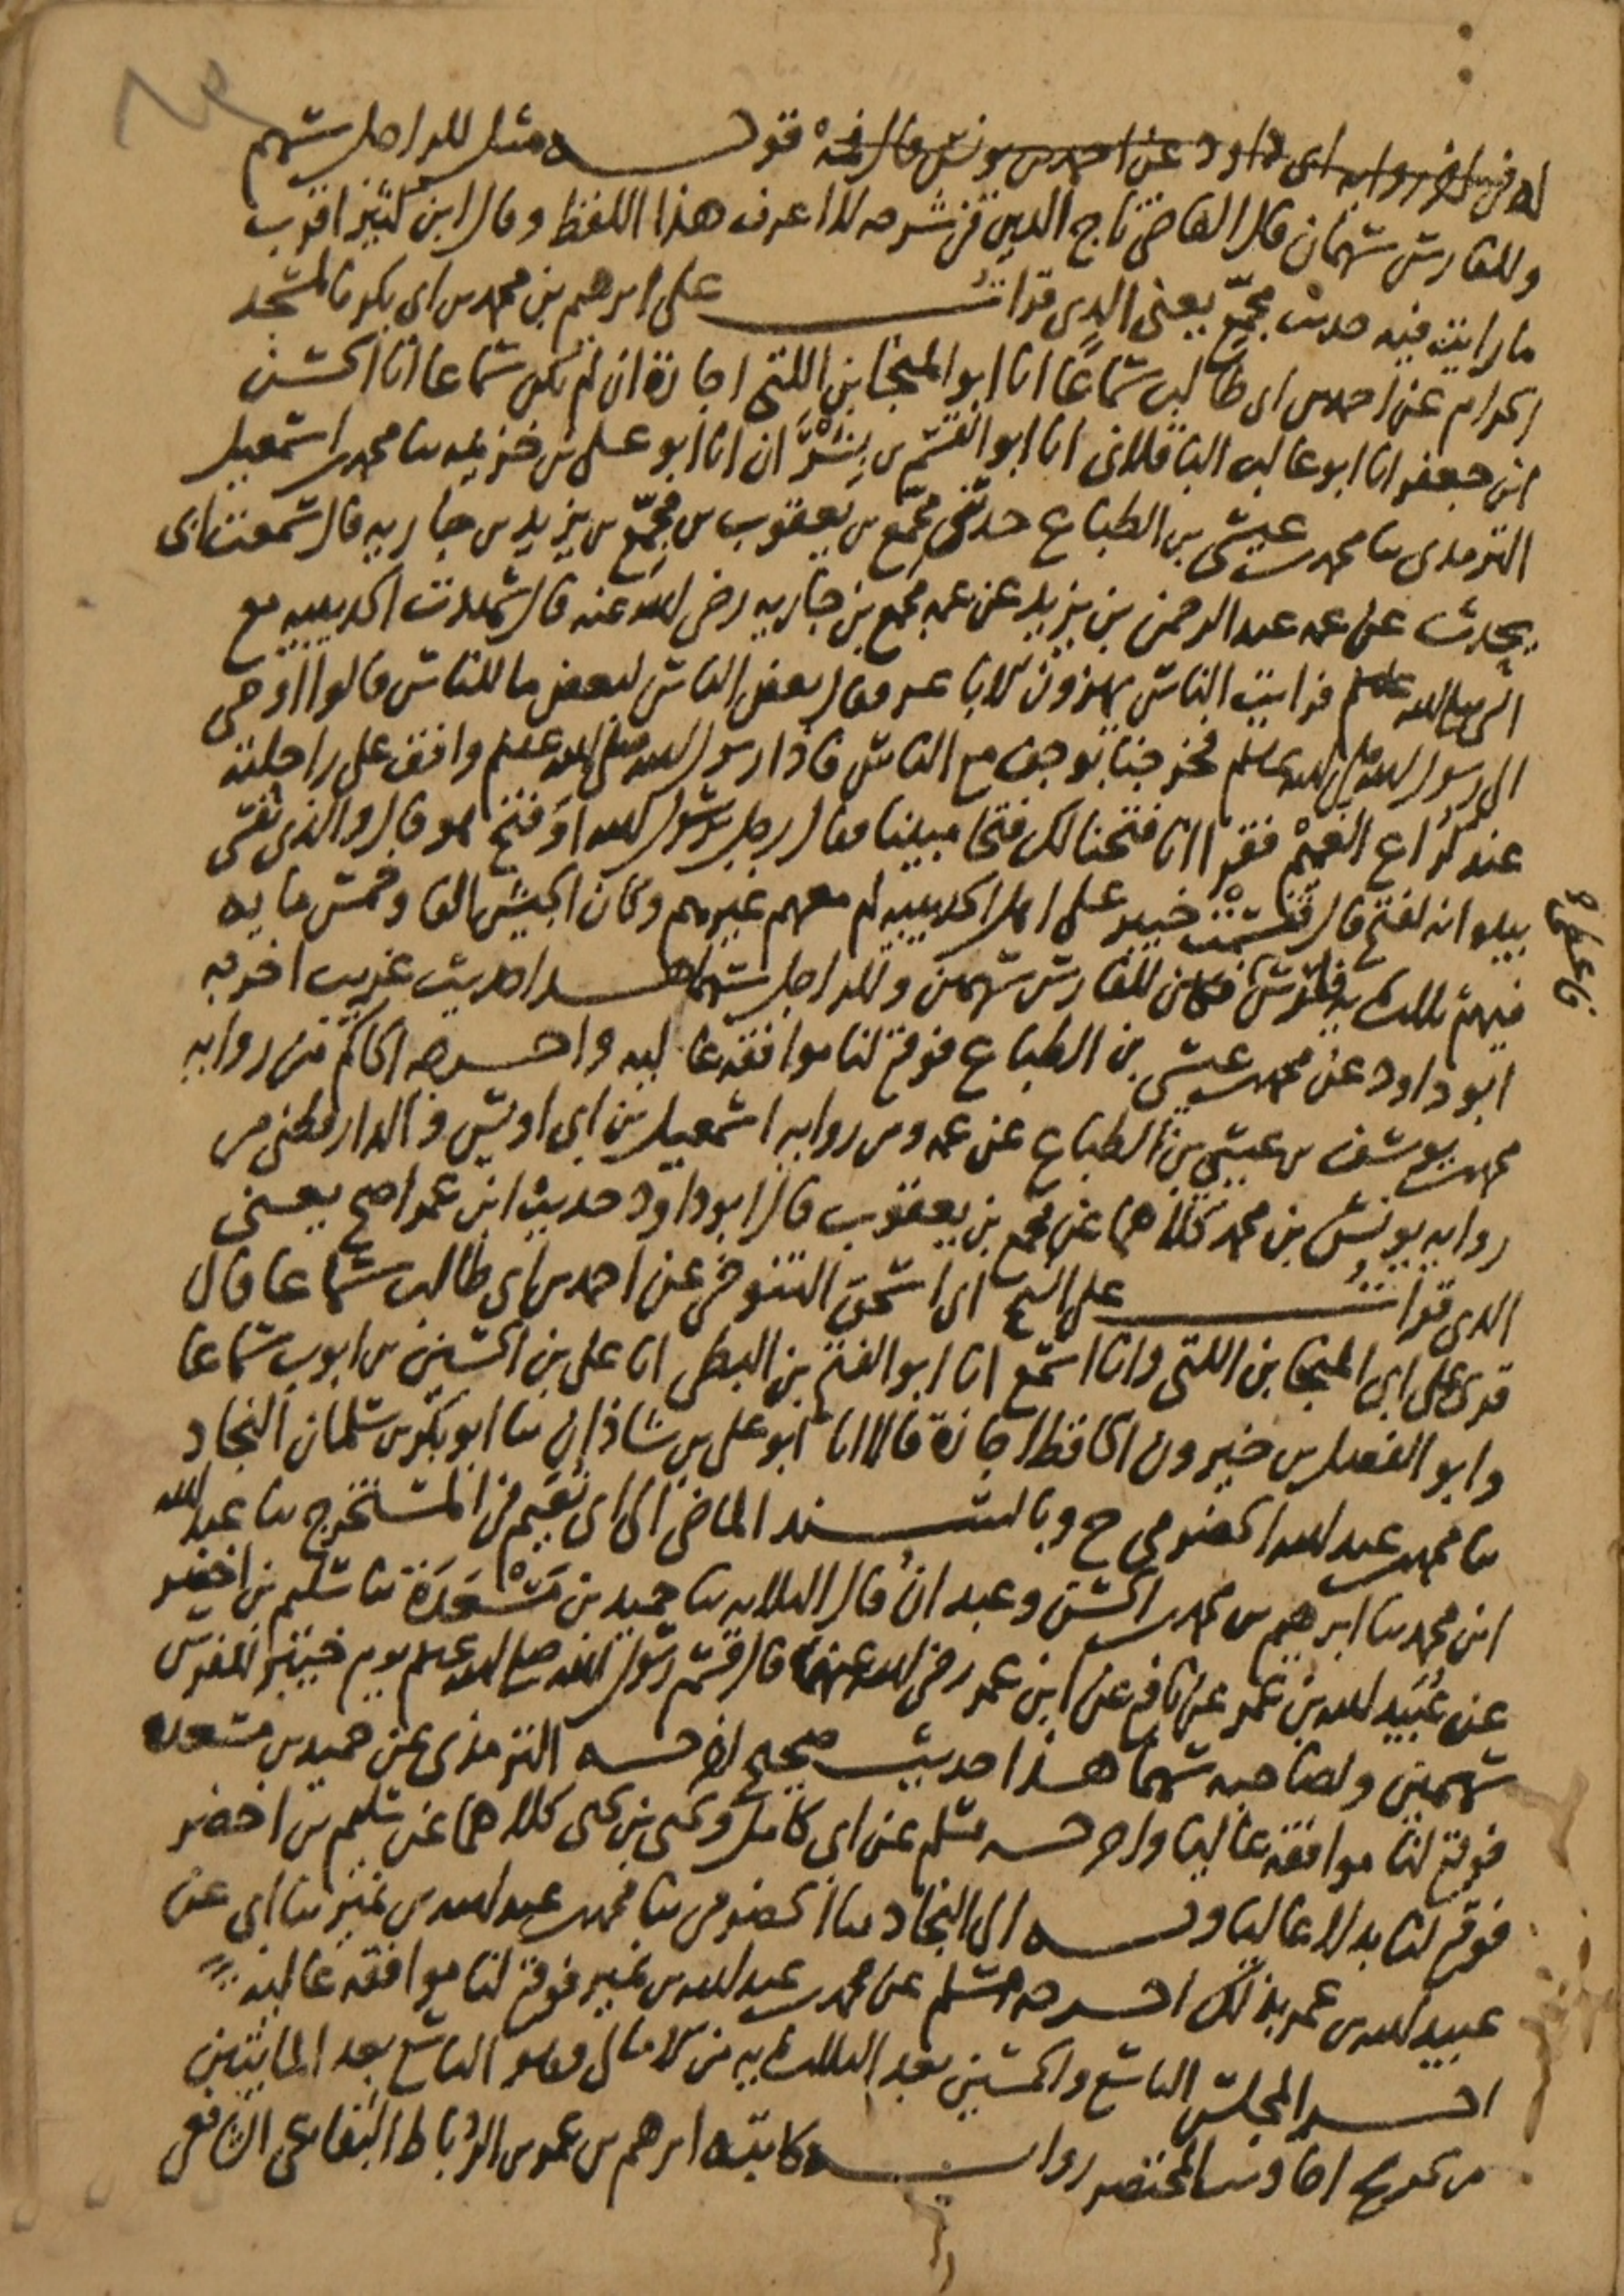 له في اخر رواية ابي داود عن احمد بن يونس قال فيه قوله مثل للراجل سهم
وللفارس سهمان قال القاضي تاج الدين في شرحه لا اعرف هذا اللفظ وقال ابن كثير اقرب
ما رايت فيه حديث مجمع يعني الذي قرات على ابرهيم بن محمد بن ابي بكر بالمسجد
الحرام عن احمد بن ابي طالب سماعا انا ابو المنجا بن اللتي اجازة ان لم يكن سماعا انا الحسن
ابن جعفر انا ابو غالب الباقلاني انا ابو القسم بن بشران انا ابو علي بن خزيمة ثنا محمد بن اسمعيل
الترمذي ثنا محمد بن عيسى بن الطباع حدثني مجمع بن يعقوب بن مجمع بن يزيد بن جاريه قال سمعت ابي
يحدث عن عمه عبد الرحمن بن يزيد عن عمه مجمع بن جاريه رضي الله عنه قال شهدت الحديبيه مع
النبي صلى الله عليه وسلم فرايت الناس يهزون الاباعر فقال بعض الناس لبعض ما للناس قالوا اوحي
الى رسول الله صلى الله عليه وسلم فخرجنا نوجف مع الناس فاذا رسول الله صلى الله عليه وسلم واقف على راحلته
عند كراع الغميم فقرا انا فتحنا لك فتحا مبينا فقال رجل يرسول الله اوفتح هو قال والذي نفسي
بيده انه لفتح قال فقسمت خيبر على اهل الحديبيه لم معهم غيرهم وكان الجيش الفا وخمس مايه
فيهم ثلثمايه فارس فكان للفارس سهمين وللراجل سهما هذا حديث غريب اخرجه
فاعطى
ابو داود عن محمد بن عيسى بن الطباع فوقع لنا موافقة عاليه واخرجه الحاكم من روايه
محمد بن يوسف بن عيسى بن الطباع عن عمه ومن روايه اسمعيل بن ابي اويس والدارقطني من
روايه يونس بن محمد كلاهما عن مجمع بن يعقوب قال ابو داود حديث ابن عمر اصح يعني
الذي قرات على الشيخ ابي اسحق التنوخي عن احمد بن ابي طالب سماعا قال
قرى على ابي المنجا بن اللتي وانا اسمع انا ابو الفتح بن البطي انا علي بن الحسين بن ايوب سماعا
وابو الفضل بن خيرون الحافظ اجازة قالا انا ابو علي بن شاذان ثنا ابو بكر بن سلمان النجاد
ثنا محمد بن عبد الله الحضرمي ح وبالسند الماضي الى ابي نعيم في المستخرج ثنا عبد الله
ابن محمد ثنا ابرهيم بن محمد بن الحسن وعبدان قال الثلاثه ثنا حميد بن مسعدة ثنا سليم بن اخضر
عن عبيد الله بن عمر عن نافع عن ابن عمر رضي الله عنهما قال قسم رسول الله صلى الله عليه وسلم يوم خيبر للفرس
سهمين ولصاحبه سهما هذا حديث صحيح اخرجه الترمذي عن حميد بن مسعدة
فوقع لنا موافقة عاليا واخرجه مسلم عن ابي كامل ويحيى بن يحيى كلاهما عن سليم بن اخضر
فوقع لنا بدلا عاليا وبه الى النجاد ثنا الحضرمي ثنا محمد بن عبد الله بن نمير ثنا ابي عن
عبيد الله بن عمر بذلك اخرجه مسلم عن محمد بن عبد الله بن نمير فوقع لنا موافقة عاليه
اخر المجلس التاسع والخمسين بعد الثلثمايه من الامالي وهو التاسع بعد المايتين
من تخريج احاديث المختصر رواية كاتبه ابرهيم بن عمر بن الرباط البقاعي الشافعي